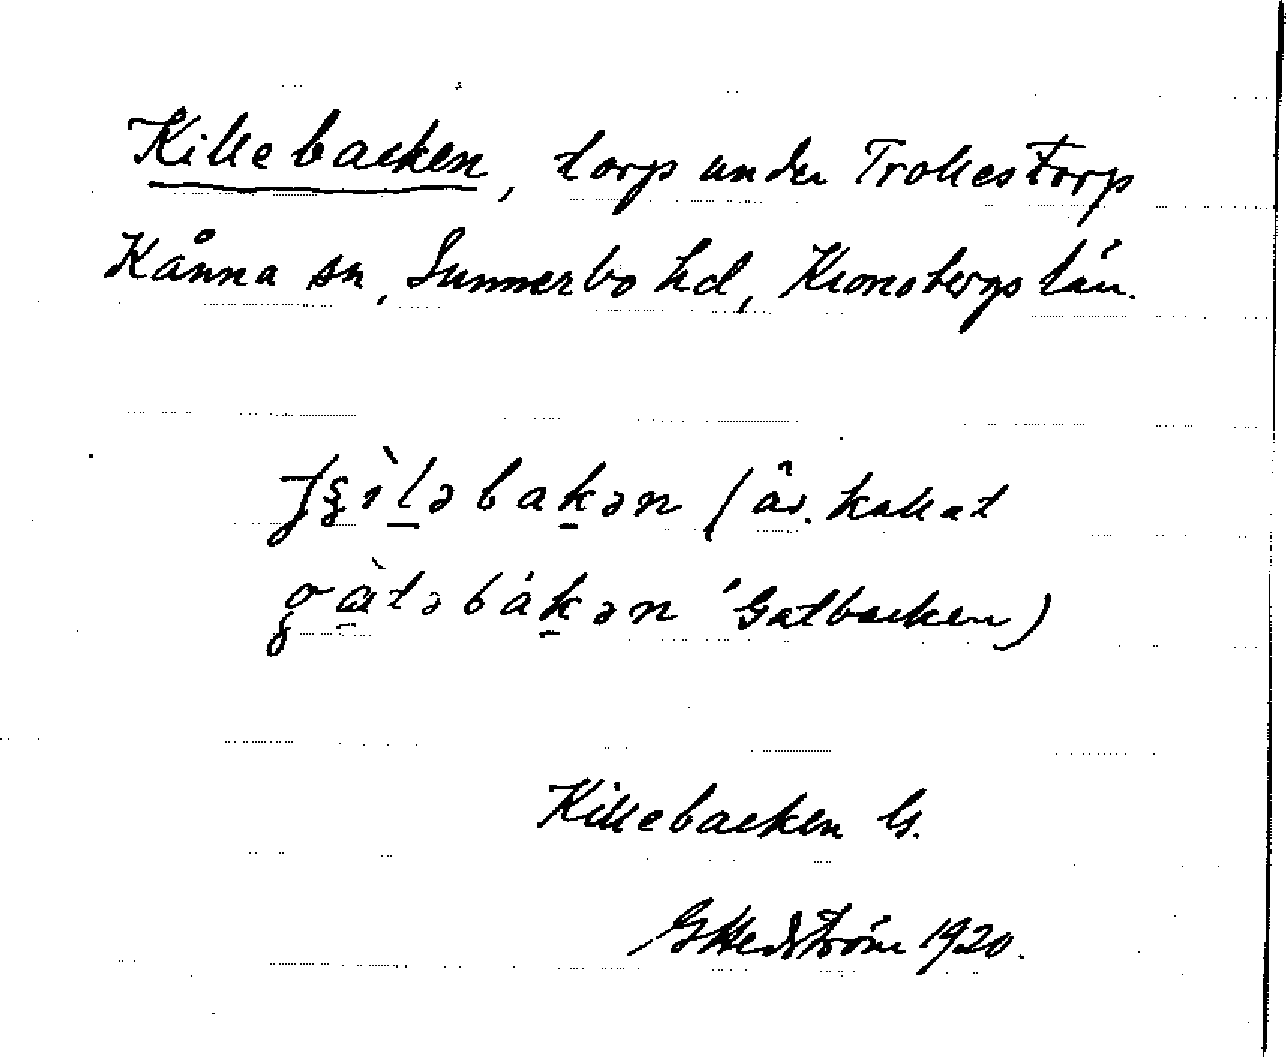 Killebacken, torp under Trollestorp
Kånna sn, Sunnerbo hd, Kronobergs län.
(äv. kallat
'Gatbacken)
Killebacken G.
GHedström 1920.